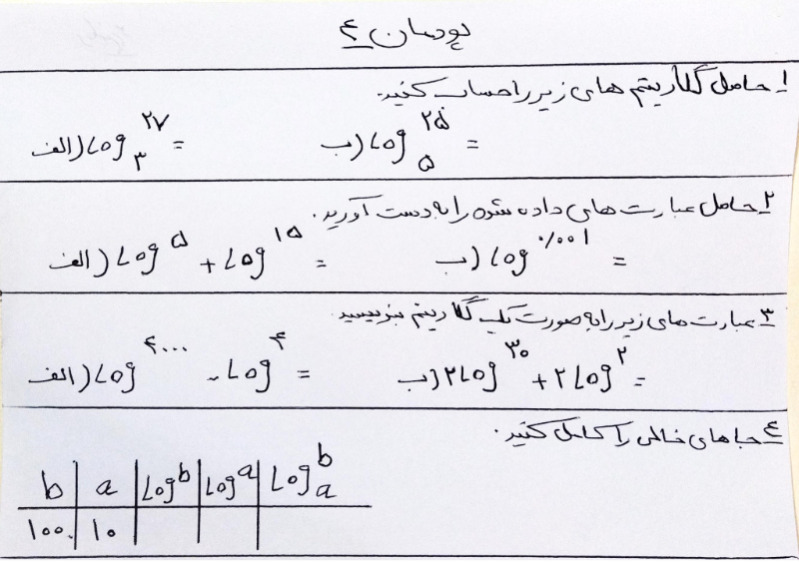 پودمان ۴
۱ـ حاصل لگاریتم های زیر را حساب کنید.
الف) Log₃^۲۷ = ب) Log₅^۲۵ =
۲ـ حاصل عبارت های داده شده را به دست آورید.
الف) Log^۵ + Log^۱۵ = ب) Log^۰/۰۰۱ =
۳ـ عبارت های زیر را به صورت یک لگاریتم بنویسید.
الف) Log^۴۰۰۰ - Log^۴ = ب) ۲Log^۳۰ + ۲Log^۲ =
۴ـ جاهای خالی را کامل کنید.
b a Log^b Log^a Log_a^b
۱۰۰۰ ۱۰